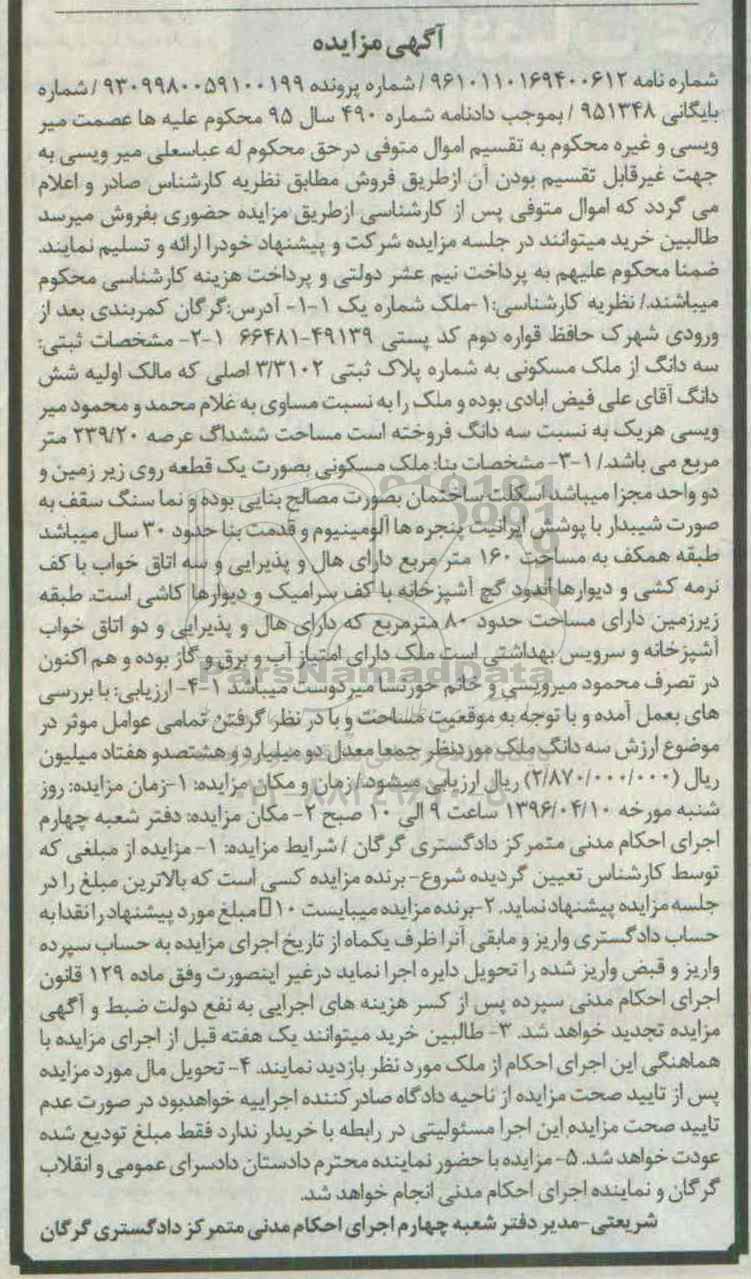 آگهی مزایده
شماره نامه ۹۶۱۰۱۱۰۱۶۹۴۰۰۶۱۲ / شماره پرونده ۹۳۰۹۹۸۰۰۵۹۱۰۰۱۹۹ / شماره
بایگانی ۹۵۱۳۴۸ / بموجب دادنامه شماره ۴۹۰ سال ۹۵ محکوم علیه ها عصمت میر
ویسی و غیره محکوم به تقسیم اموال متوفی درحق محکوم له عباسعلی میر ویسی به
جهت غیرقابل تقسیم بودن آن ازطریق فروش مطابق نظریه کارشناس صادر و اعلام
می گردد که اموال متوفی پس از کارشناسی ازطریق مزایده حضوری بفروش میرسد
طالبین خرید میتوانند در جلسه مزایده شرکت و پیشنهاد خودرا ارائه و تسلیم نمایند.
ضمنا محکوم علیهم به پرداخت نیم عشر دولتی و پرداخت هزینه کارشناسی محکوم
میباشند./ نظریه کارشناسی:۱-ملک شماره یک ۱-۱- آدرس:گرگان کمربندی بعد از
ورودی شهرک حافظ قواره دوم کد پستی ۴۹۱۳۹-۶۶۴۸۱ ۱-۲- مشخصات ثبتی:
سه دانگ از ملک مسکونی به شماره پلاک ثبتی ۳/۳۱۰۲ اصلی که مالک اولیه شش
دانگ آقای علی فیض ابادی بوده و ملک را به نسبت مساوی به غلام محمد و محمود میر
ویسی هریک به نسبت سه دانگ فروخته است مساحت ششداگ عرصه ۲۳۹/۲۰ متر
مربع می باشد./ ۱-۳- مشخصات بنا: ملک مسکونی بصورت یک قطعه روی زیر زمین و
دو واحد مجزا میباشد اسکلت ساختمان بصورت مصالح بنایی بوده و نما سنگ سقف به
صورت شیبدار با پوشش ایرانیت پنجره ها آلومینیوم و قدمت بنا حدود ۳۰ سال میباشد
طبقه همکف به مساحت ۱۶۰ متر مربع دارای هال و پذیرایی و سه اتاق خواب با کف
نرمه کشی و دیوارها اندود گچ آشپزخانه با کف سرامیک و دیوارها کاشی است. طبقه
زیرزمین دارای مساحت حدود ۸۰ مترمربع که دارای هال و پذیرایی و دو اتاق خواب
آشپزخانه و سرویس بهداشتی است ملک دارای امتیاز آب و برق و گاز بوده و هم اکنون
ParsNamadData
در تصرف محمود میرویسی و خانم حورنسا میردوست میباشد ۱-۴- ارزیابی: با بررسی
های بعمل آمده و با توجه به موقعیت مساحت و با در نظر گرفتن تمامی عوامل موثر در
موضوع ارزش سه دانگ ملک موردنظر جمعا معدل دو میلیارد و هشتصدو هفتاد میلیون
ریال (۲/۸۷۰/۰۰۰/۰۰۰) ریال ارزیابی میشود./ زمان و مکان مزایده: ۱-زمان مزایده: روز
شنبه مورخه ۱۳۹۶/۰۴/۱۰ ساعت ۹ الی ۱۰ صبح ۲- مکان مزایده: دفتر شعبه چهارم
اجرای احکام مدنی متمرکز دادگستری گرگان / شرایط مزایده: ۱- مزایده از مبلغی که
توسط کارشناس تعیین گردیده شروع- برنده مزایده کسی است که بالاترین مبلغ را در
جلسه مزایده پیشنهاد نماید. ۲-برنده مزایده میبایست ۱۰□ مبلغ مورد پیشنهاد را نقدا به
حساب دادگستری واریز و مابقی آنرا ظرف یکماه از تاریخ اجرای مزایده به حساب سپرده
واریز و قبض واریز شده را تحویل دایره اجرا نماید درغیر اینصورت وفق ماده ۱۲۹ قانون
اجرای احکام مدنی سپرده پس از کسر هزینه های اجرایی به نفع دولت ضبط و آگهی
مزایده تجدید خواهد شد. ۳- طالبین خرید میتوانند یک هفته قبل از اجرای مزایده با
هماهنگی این اجرای احکام از ملک مورد نظر بازدید نمایند. ۴- تحویل مال مورد مزایده
پس از تایید صحت مزایده از ناحیه دادگاه صادرکننده اجراییه خواهدبود در صورت عدم
تایید صحت مزایده این اجرا مسئولیتی در رابطه با خریدار ندارد فقط مبلغ تودیع شده
عودت خواهد شد. ۵- مزایده با حضور نماینده محترم دادستان دادسرای عمومی و انقلاب
گرگان و نماینده اجرای احکام مدنی انجام خواهد شد.
شریعتی-مدیر دفتر شعبه چهارم اجرای احکام مدنی متمرکز دادگستری گرگان